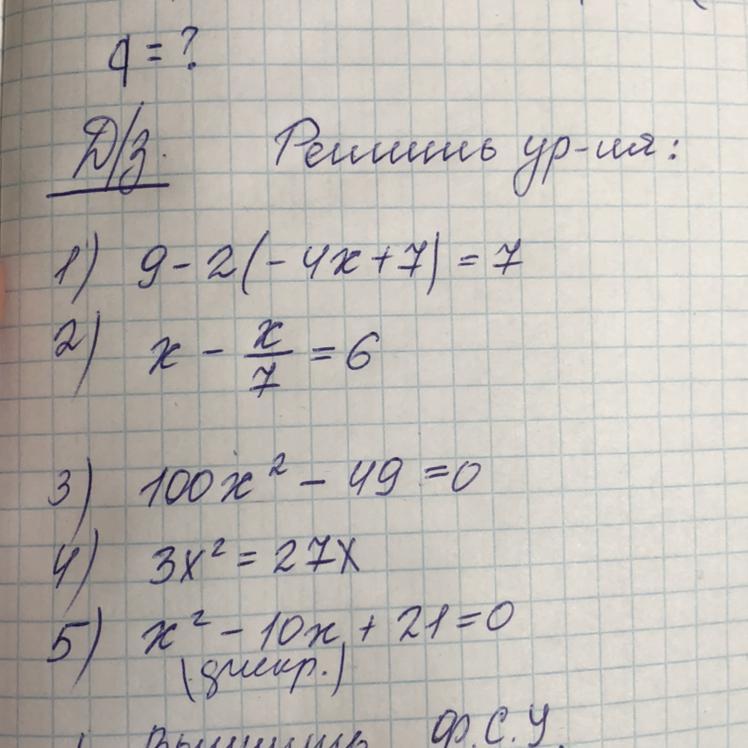 q = ?
Д/з. Решить ур-ия:
1) 9 - 2(-4x + 7) = 7
2) x - x/7 = 6
3) 100x² - 49 = 0
4) 3x² = 27x
5) x² - 10x + 21 = 0
(дискр.)
Ф.С.У.